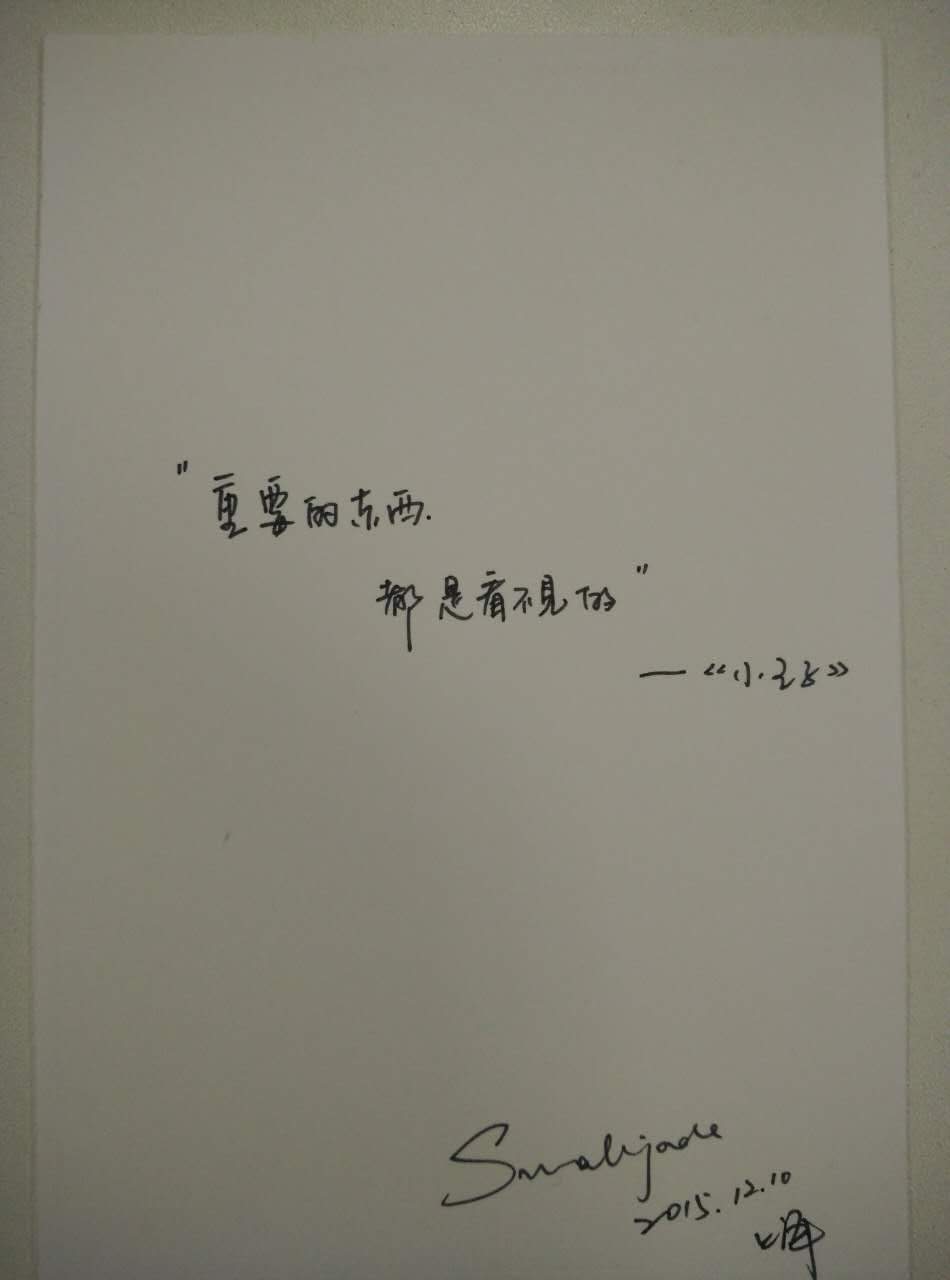 "重要的东西.
都是看不見的"
—《小王子》
Smalljade
2015.12.10